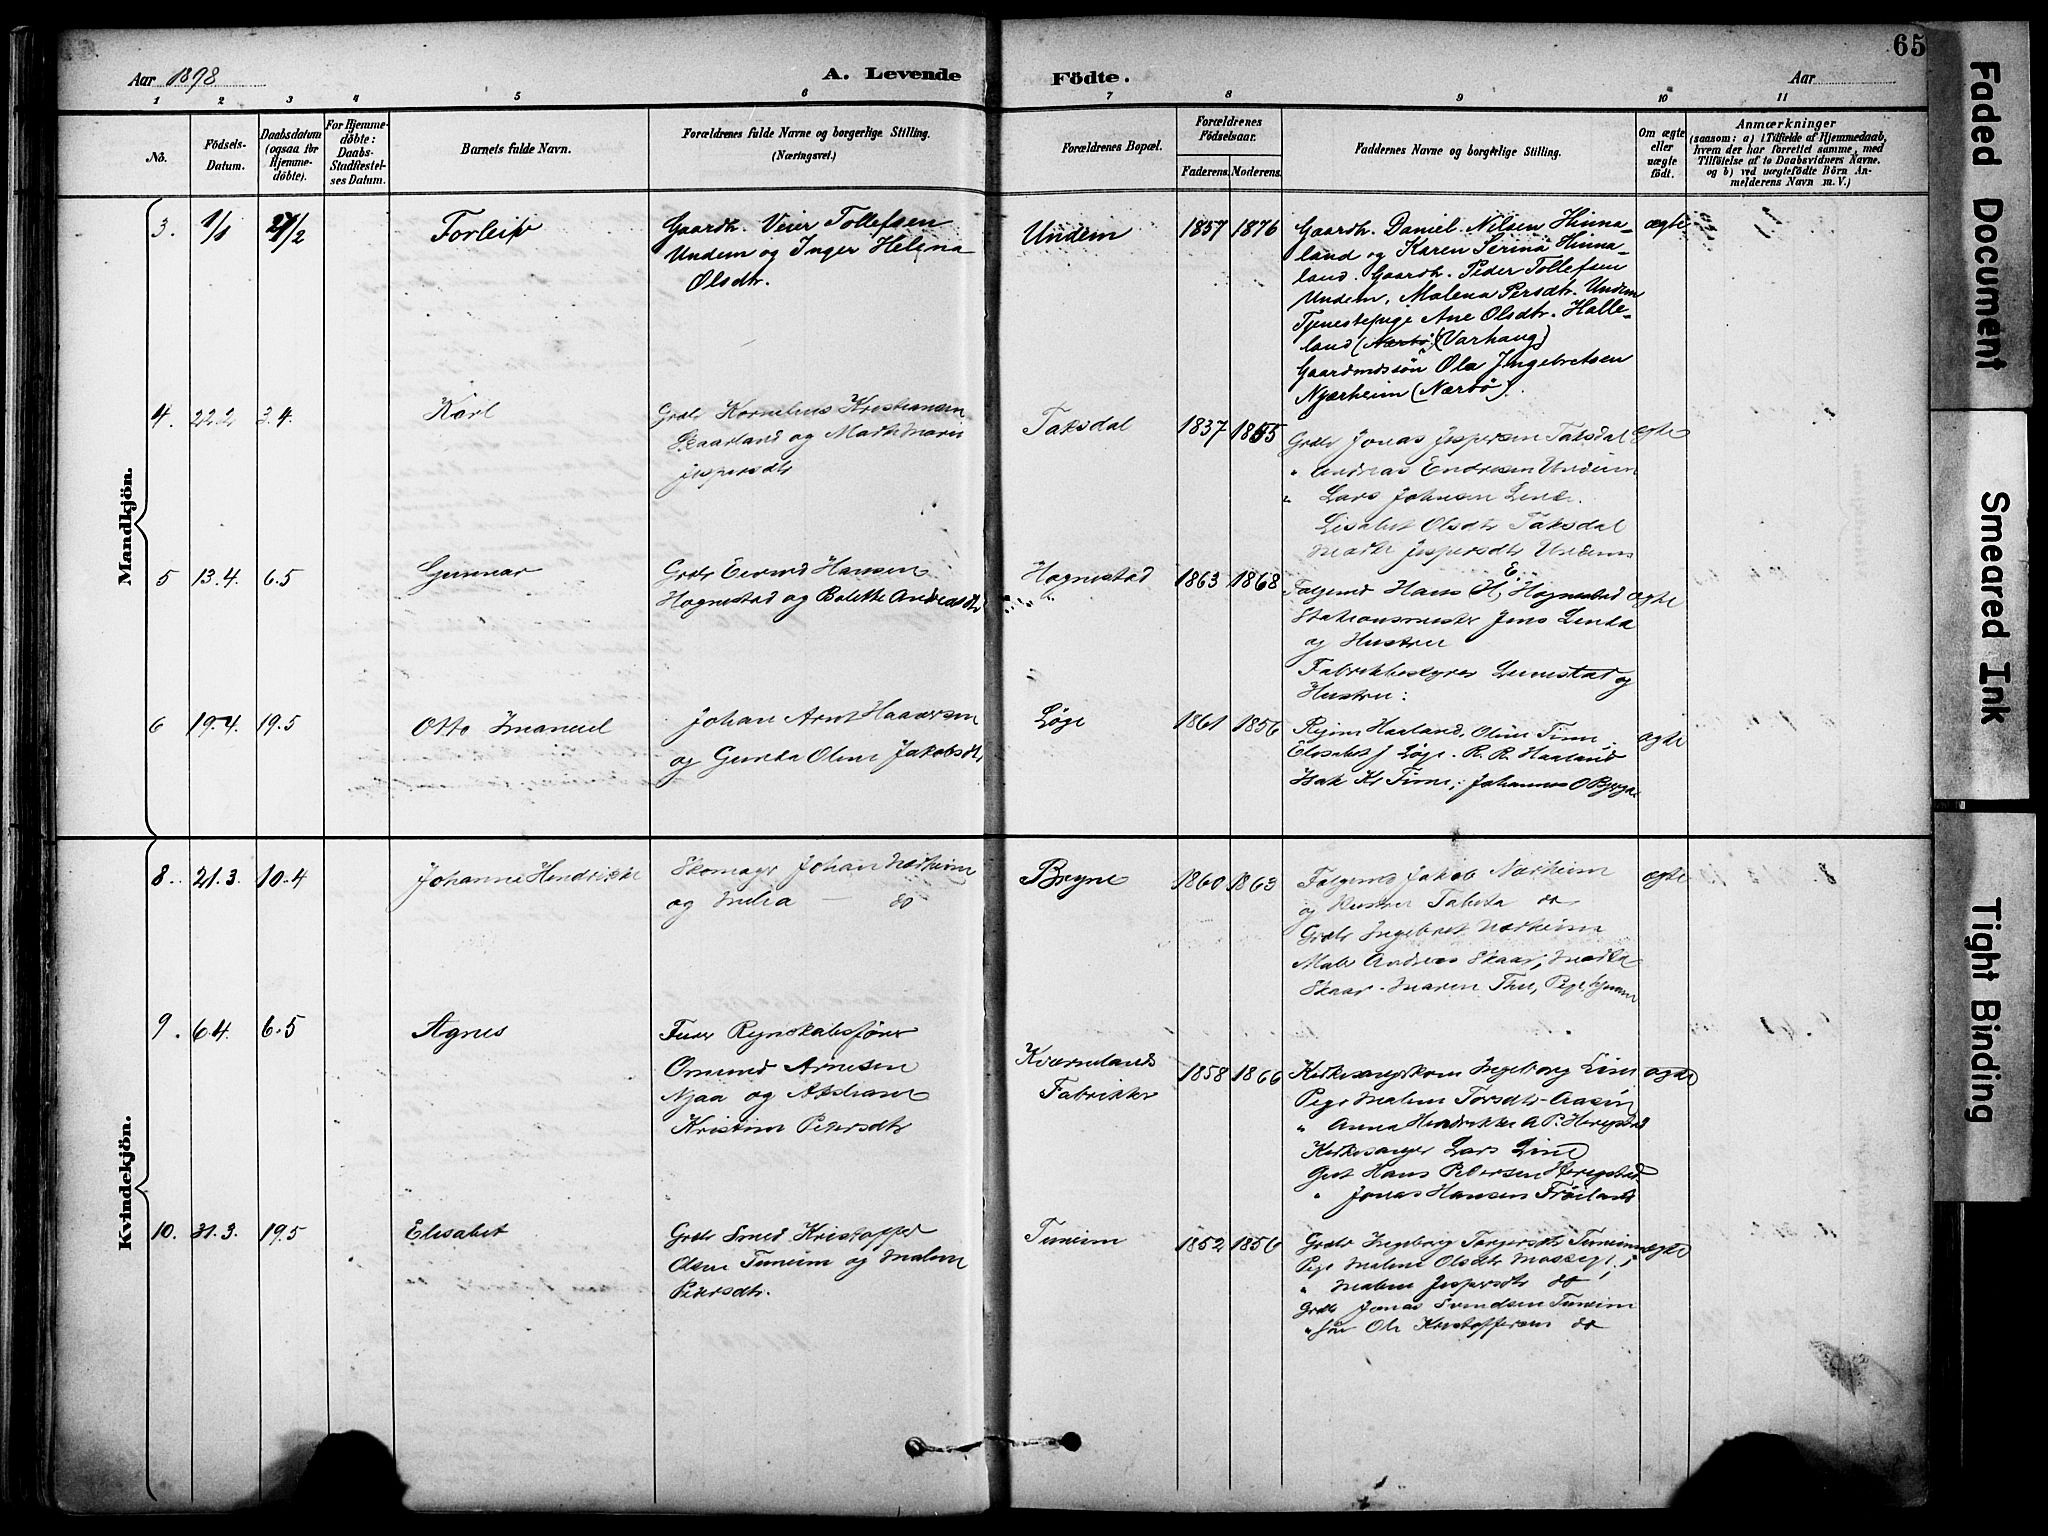 65
Aar 1898
A. Levende Födte.
Aar
1 2 3 4 5 6 7 8 9 10 11
No.
Födsels-Datum.
Daabsdatum (ogsaa for Hjemme-döbte).
For Hjemme-döbte: Daabs-Stadfæstel-ses Datum.
Barnets fulde Navn.
Forældrenes fulde Navne og borgerlige Stilling.
(Næringsvei.)
Forældrenes Bopæl.
Forældrenes Födselsaar.
Faderens. Moderens.
Faddernes Navne og borgerlige Stilling.
Om ægte eller uægte födt.
Anmærkninger
(saasom: a) i Tilfælde af Hjemmedaab,
hvem der har forrettet samme, med
Tilföielse af to Daabsvidners Navne.
og b) ved uægtefödte Börn An-
melderens Navn m. V.)
Mandkjön.
3. 1/1 27/2 Torleif
Gaardb. Veier Tollefsen
Undem og Inger Helena
Olsdtr.
Undem 1857 1876
Gaardb. Daniel Nilsen Hinna-
land og Karen Serina Hinna-
land. Gaardb. Peder Tollefsen
Undem, Malena Persdtr. Undem
Tjenestepige Ane Olsdtr. Halle-
land (Nærbö) (Varhaug)
Gaardmdssön Ola Ingebretsen
Njærheim (Nærbö).
ægte
4. 22.2 3.4. Karl
Grdb Kornelius Kristiansen
Skaarland og Marthe Marie
Jespersdtr
Taksdal 1837 1855
Grdb Jonas Jespersen Taksdal
" Andreas Endresen Undeim
" Lars Johnsen Line.
Lisabet Olsdtr Taksdal
Marthe Jespersdtr Undeim
ægte
5 13.4. 6.5 Gunnar
Grdb Eivind Hansen
Hognestad og Bolette Andreasdtr
Hognestad 1863 1868
Folgemd Hans E. H. Hognestad
Stationsmester Jens Linda
og Hustru
Fabrikbestyrer Lunestad og
Hustru:
ægte
6 19.4. 19.5 Otto Imanuel
Johan Arnt Haaversen
og Gurita Oline Jakobsdtr
Løge 1861 1856
Regine Haaland, Oline Time
Elisabet J Løge. R. R. Haaland
Isak Kr Time; Johannes O Bjerga
ægte
Kvindekjön.
8. 21.3. 10.4 Johanne Hendrikke
Skomager Johan Nærheim
og Milia — do
Bryne 1860 1863
Folgemd Jakob Nærheim
og Hustru Tabita do
Grdb Ingebret Nærheim
Maler Andreas Skaar; Marta
Skaar. Maren Thu, Pige
ægte
9. 6.4. 6.5 Agnes
Regnskabsfører
Omund Arnesen
Njaa og Abeliane
Kristine Petersdtr
Kværnelands
Fabrikker
1858 1866
Kirkesangerkone Ingeborg Line
Pige Malene Torsdtr Aasen
" Anna Hendrikke A P. Herigstad
Kirkesanger Lars Line
Gut Hans Pedersen Herigstad
" Jonas Hansen Frøiland
ægte
10. 31.3. 19.5 Elisabet
Grdb Smed Kristoffer
Olsen Tuneim og Malene
Petersdtr.
Tuneim 1852 1856
Grdb Ingeborg Torgersdtr Tuneim
Pige Malene Olsdtr Mossige;
" Malene Jespersdtr do;
Grdb Jonas Svendsen Tuneim
" søn Ole Kristoffersen do
ægte
Faded Document
Smeared Ink
Tight Binding